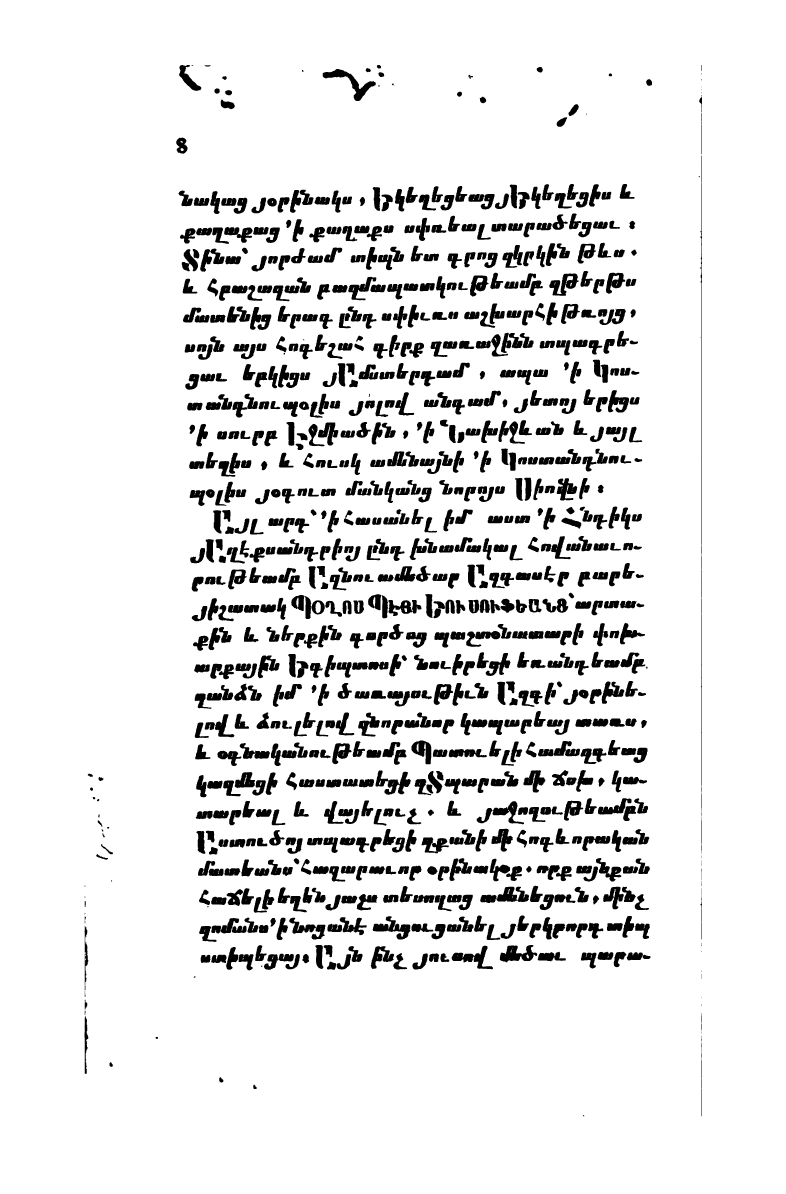 8
նակաց յօրինակս , Եկեղեցեաց յԵկեղեցիս և
քաղաքաց ՚ի քաղաքս սփռեալ տարածեցաւ ։
Զինա՝ յորժամ տիպն ետ գրոց զկրկին թևս .
և Հրաշազան բազմապատկութեամբ զթերթս
մատենից երագ ընդ սփիւռս աշխարհի թռոյց ,
սոյն այս Հոգեշահ գիրք զառաջինն տպագրե-
ցաւ երկիցս յԱմստերդամ , ապա ՚ի Կոս-
տանդնուպօլիս յոլով անգամ , յետոյ երիցս
՚ի սուրբ Էջմիածին , ՚ի Նախիջևան և յայլ
տեղիս , և Հուսկ ամենայնի ՚ի Կոստանդնու-
պօլիս յօգուտ մանկանց նորոյս Սիովնի ։
Այլ արդ՝ ՚ի Հասանել իմ աստ ՚ի Հնդիկս
յԱղէքսանդրիոյ ընդ խնամակալ Հովանաւո-
րութեամբ Ազնուամեծար Ազգասէր բարե-
յիշատակ ՊՕՂՈՍ ՊԷՅԻ ԵՈՒՍՈՒՖԵԱՆՑ՝ արտա-
քին և ներքին գործոց պաշտօնատարի փոխ-
արքային Եգիպտոսի՝ նուիրեցի եռանդեամբ
զանձն իմ ՚ի ծառայութիւն Ազգի՝ յօրինե-
լով և ձուլելով զնորանոր կապարեայ տառս ,
և օգնականութեամբ Պատուելի Համազգեաց
կազմեցի Հաստատեցի զՏպարան մի ճոխ , կա-
տարեալ և վայելուչ . և յաջողութեամբն
Աստուծոյ տպագրեցի զքանի մի Հոգևորական
մատեանս՝ Հազարաւոր օրինակօք . որք այնքան
Հաճելի եղեն յաչս տեսողաց ամենեցուն , մինչ
զոմանս ՚ի նոցանէ անցուցանել յերկրորդ տիպ
ստիպեցայ։ Այն ինչ յուսով մեծաւ պարա-